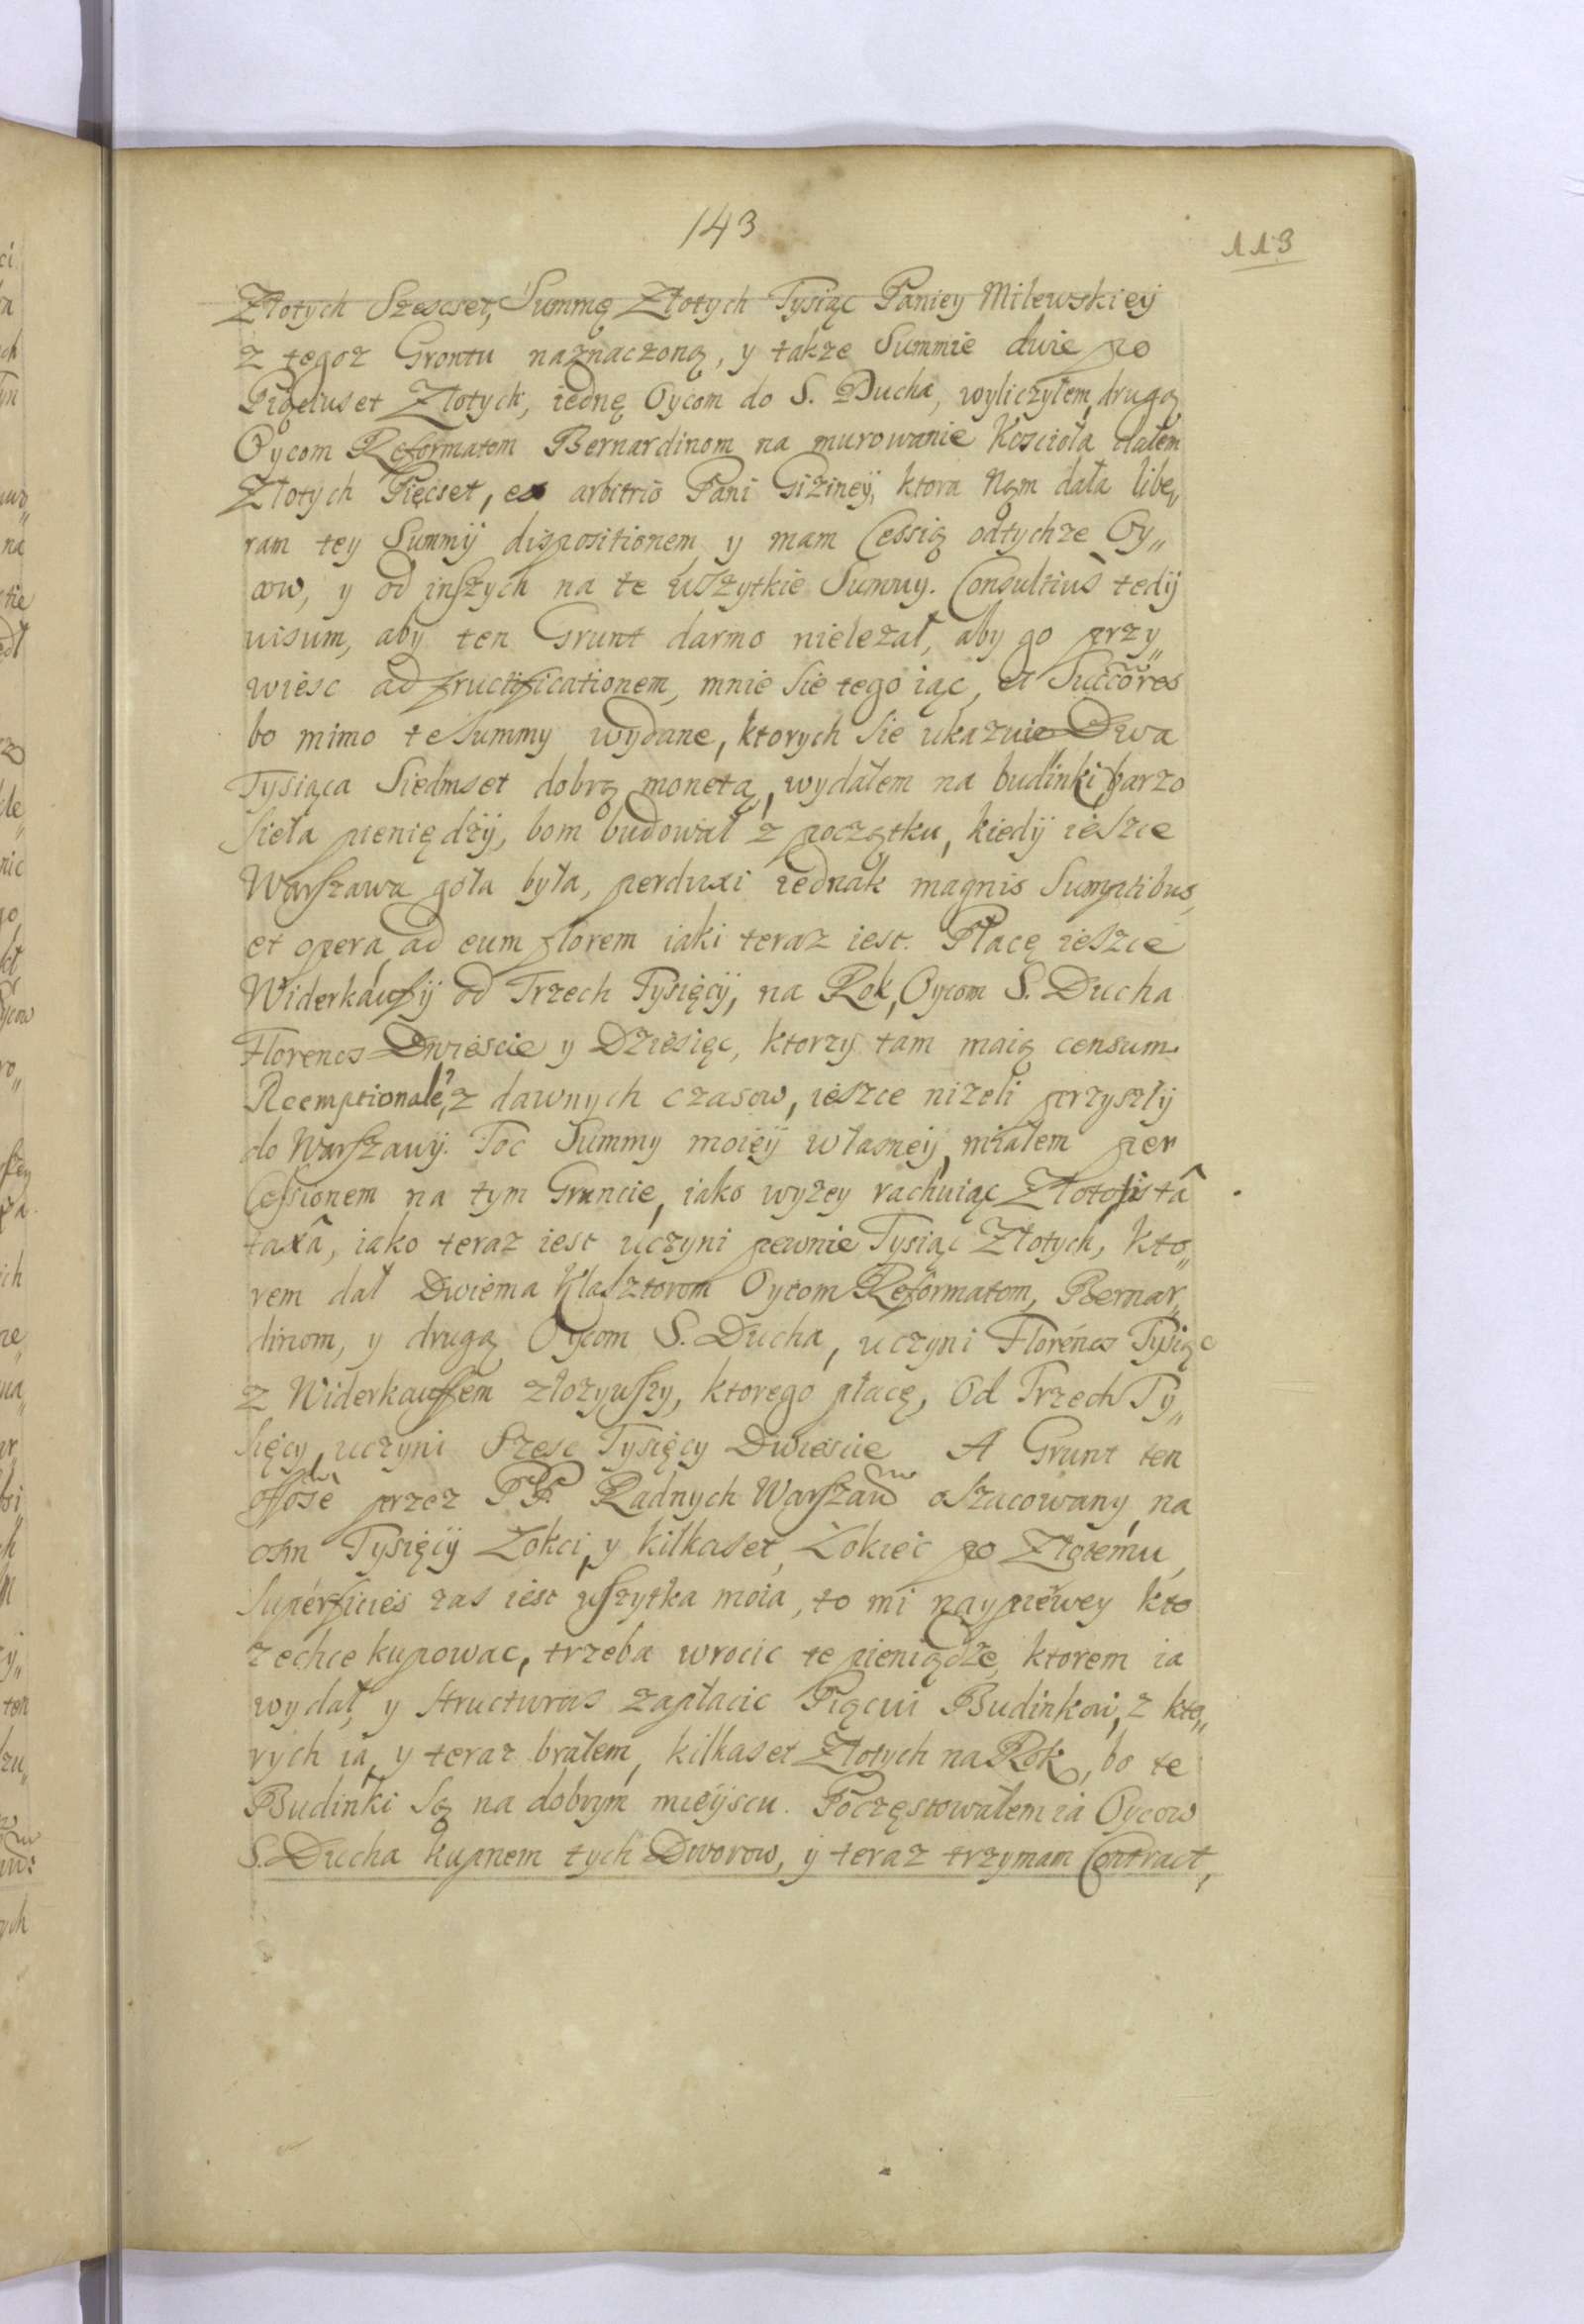 143
113
Złotych Szescset, Summę Złotych Tysiąc Paniey Milewskieÿ
z tegoz Grontu naznaczoną, y takze Summie dwie po
Pigciuset Złotych, iednę Oycom do S. Ducha, wyliczyłem, drugą
Oycom Reformatom Bernardinom na murowanie Koscioła dałem
Złotych Pięcset, ex arbitrio Pani Giżineÿ, ktora nąm dała libe„
ram tey Summÿ dispositionem y mam Cessią odtychze Oy„
cow, y od inszych na te wszytkie Summy. Consultius tedÿ
uisum, aby ten Grunt darmo nielezał, aby go przy„
wiesc ad fructificationem, mnie sie tego iąc, et Succores
bo mimo te Summy wydane, ktorych sie ukazuie Dwa
Tysiąca Siedmset dobrą monetą, wydałem na budinki barzo
siela pieniędzÿ, bom budował z początku, kiedÿ ieszce
Warszawa goła była, perduxi iednak magnis Sumptibus,
et opera ad eum florem iaki teraz iest. Płacę ieszce
Widerkaufÿ od Trzech Tysięcÿ, na Rok, Oycom S. Ducha
Florenos Dwiescie y Dziesięc, ktorzy tam maią censum
Reemptionale, z dawnych czasow, ieszce nizeli przyszłÿ
do Warszawÿ. Toc Summy moieÿ własneÿ, miałem per
Cessionem na tym Gruncie, iako wyzey rachuiąc Złoto istâ
taxâ, iako teraz iest uczyni pewnie Tysiąc Złotych, kto„
rem dał Dwiema Klasztorom Oycom Reformatom, Bernar„
dinom, y drugą Oycom S. Ducha, uczyni Florenos Tysiąc
z Widerkauffem złozywszy, ktorego płacę, Od Trzech Ty„
sięcy, uczyni Szesc Tysięcy Dwiescie A Grunt ten
przez PP. Radnych Warszaw oszacowany na
osm Tysięcÿ Łokci, y kilkaset, Łokiec po Złotemu,
Superficies zas iest wszytka moia, to mi naypiewey kto
zechce kupowac, trzeba wrocic te pieniądze, ktorem ia
wydał, y structuras zapłacic Piąciu Budinkow, z kto„
rych ia, y teraz brałem, kilkaset Złotych na Rok, bo te
Budinki są na dobrym mieÿscu. Poczęstowałem ia Oycow
S. Ducha kupnem tych Dworow, y teraz trzymam Contract,